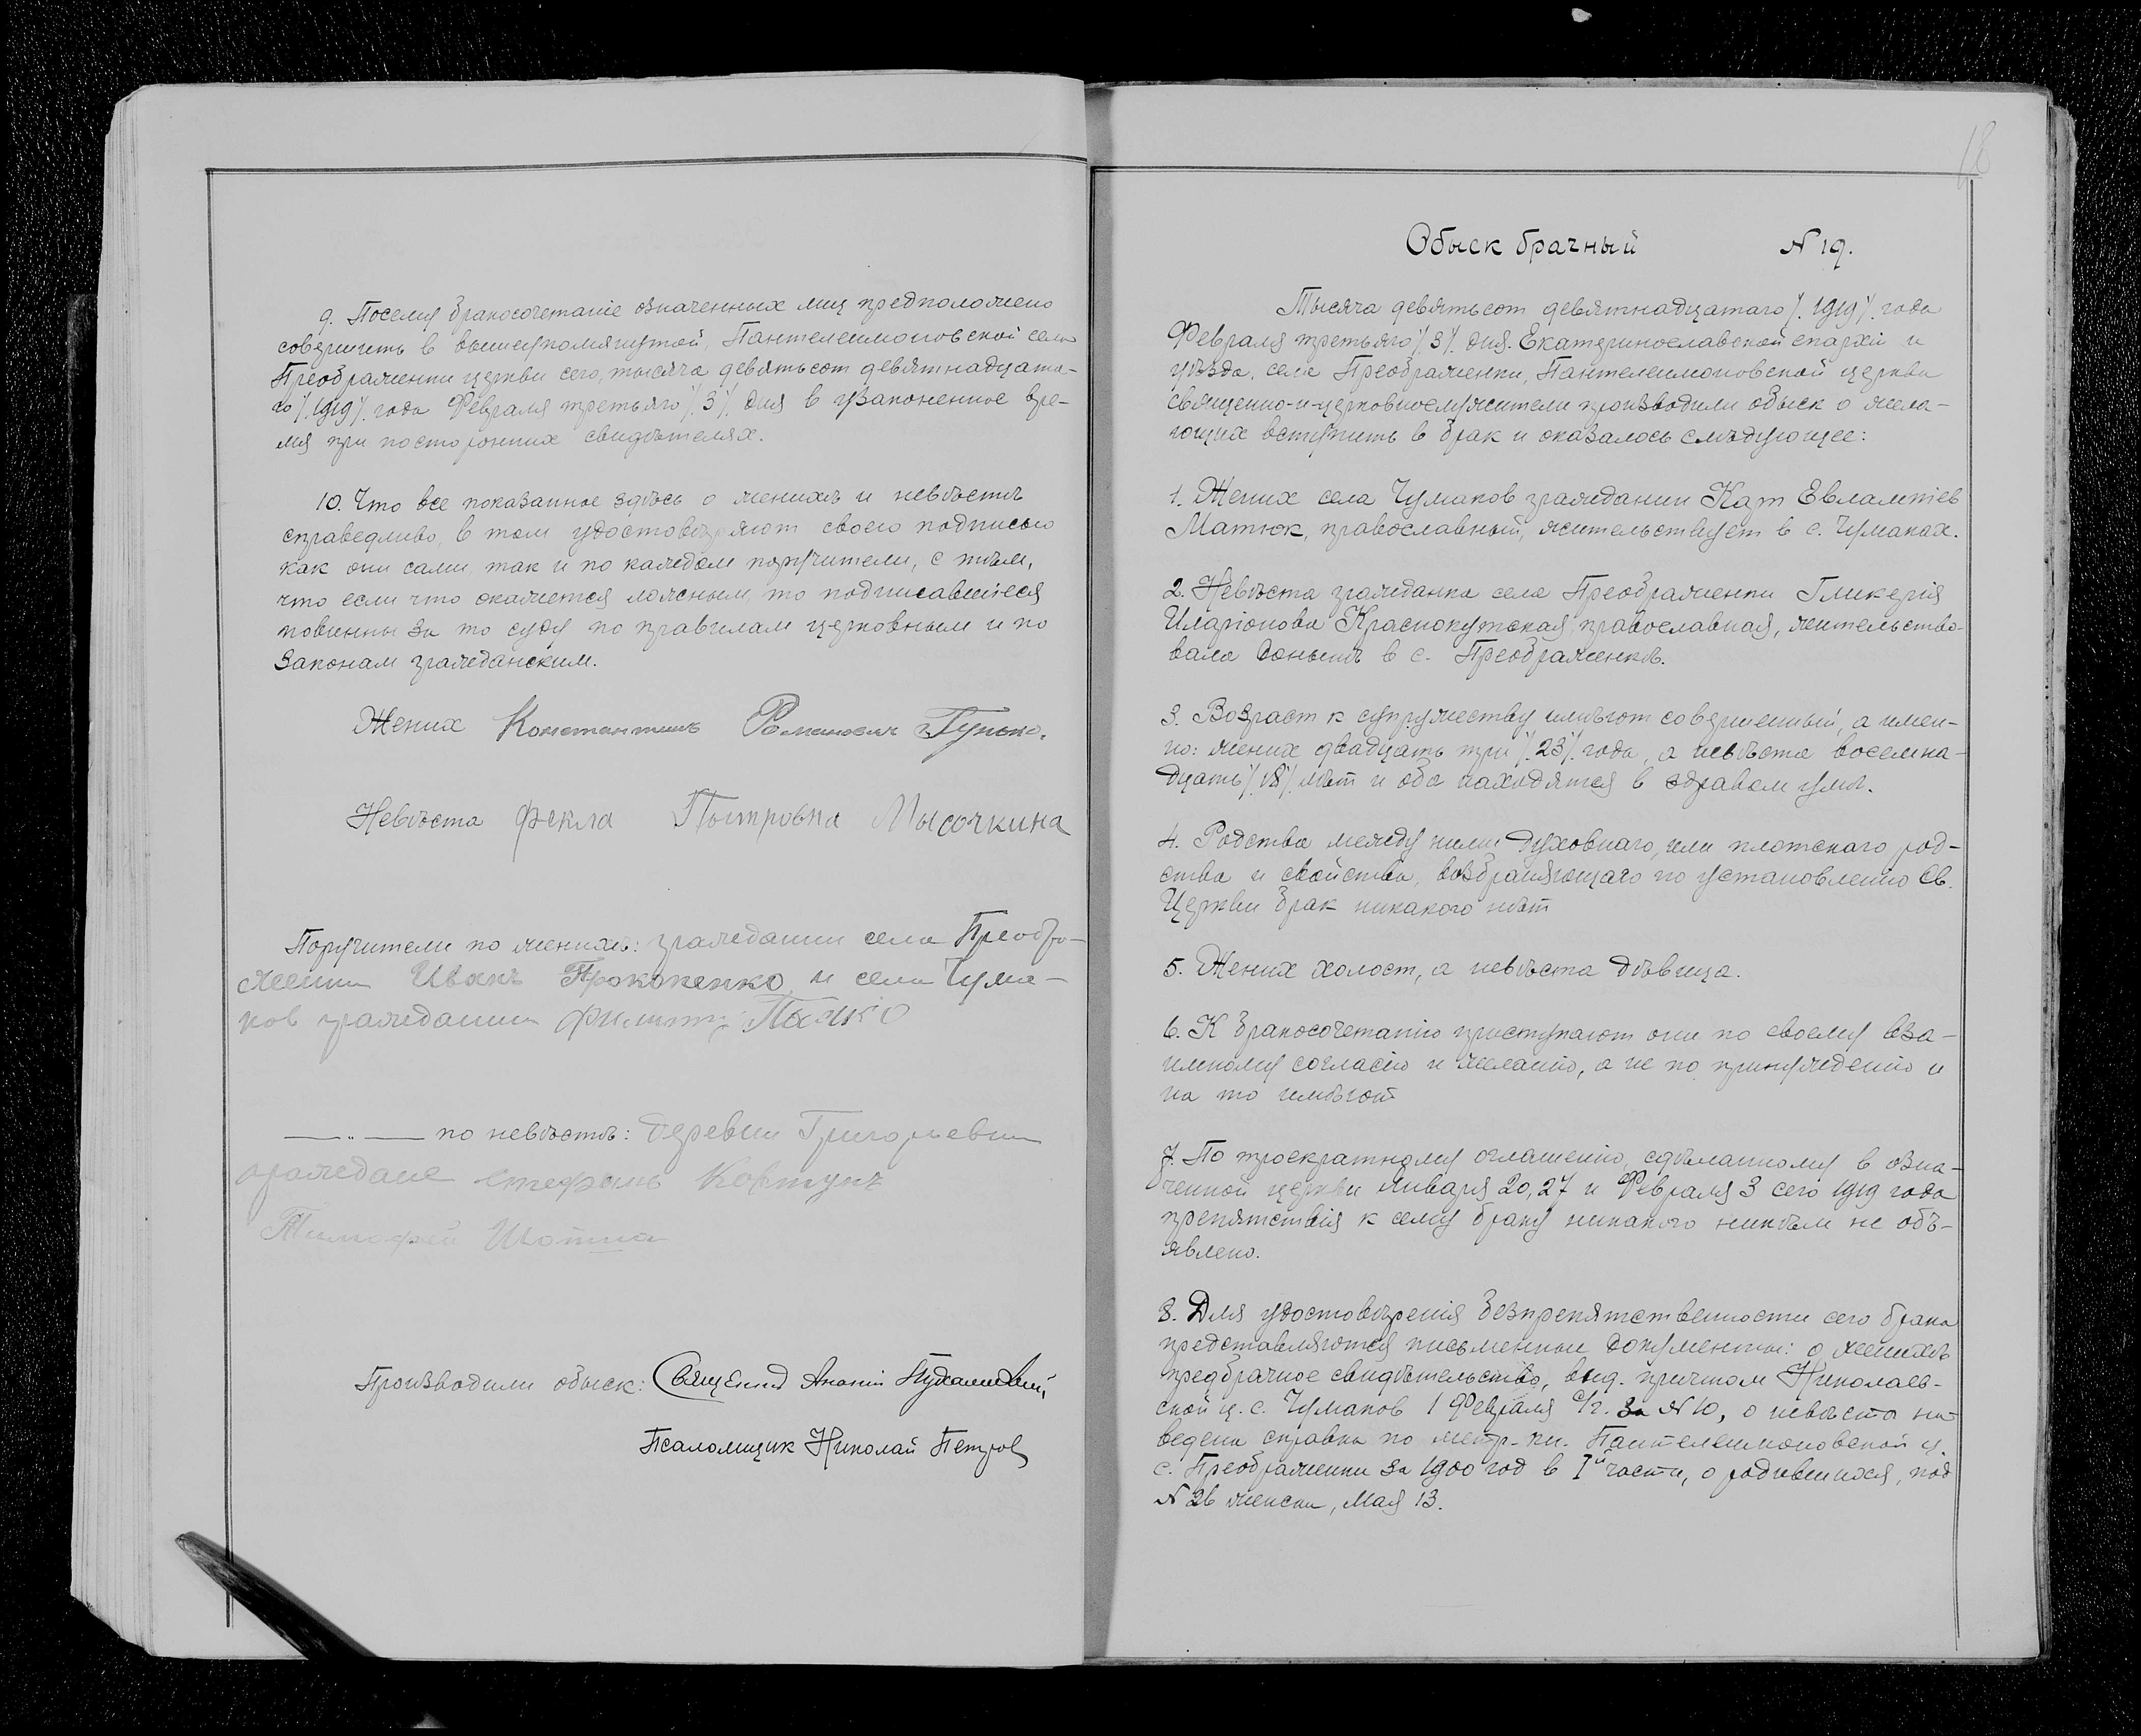 9. Посему бракосочетаніе означенных лиц предположено
совершить в вышеупомянутой, Пантелеимоновской села
Преображенки церкви сего, тысяча девятьсот девятнадцата-
го /.1919/. года Февраля третьяго /.3/. дня в узаконенное вре-
мя при посторонних свидѣтелях.
10. Что все показанное здѣсь о женихѣ и невѣстѣ
справедливо, в том удостовѣряют своею подписью
как они сами, так и по каждом поручители, с тѣм,
что если что окажется ложным, то подписавшіеся
повинны за то суду по правилам церковным и по
законам гражданским.
Жених Константинъ Романович Гунько.
Невѣста Фекла Пытровна Мысочкина
Поручители по женихѣ: граждании села Преобра-
женки Иванъ Прокопенко и села Чума-
ков гражданин Филипъ
—„— по невѣстѣ: деревни Григорьевки
граждане Стефанъ Ковтунъ
Тимофей
Производили обыск: Священник Ананій
Псаломщик Николай Петров
18
Обыск брачный N 19.
Тысяча девятьсот девятнадцатаго /.1919/. года
Февраля третьяго /.3/. дня. Екатеринославской епархіи и
уѣзда, села Преображенки, Пантелеимоновской церкви
священно-и-церковнослужители производили обыск о жела-
ющих вступить в брак и оказалось слѣдующее:
1. Жених села Чумаков гражданин Карп Евлампіев
Матюк, православный, жительствует в с. Чумаках.
2. Невѣста гражданка села Преображенки Гликерія
Иларіонова Краснокутская, православная, жительство-
вала донынѣ в с. Преображенкѣ.
3. Возраст к супружеству имѣют совершенный, а имен-
но: жених двадцать три /.23/. года, а невѣста восемна-
дцать /.18/. лѣт и оба находятся в здравом умѣ.
4. Родства между ними духовнаго, или плотскаго род-
ства и свойства, возбраняющаго по установленію Св.
Церкви брак никакого нѣт
5. Жених холост, а невѣста дѣвица.
6. К бракосочетанію приступают они по своему вза-
имному согласію и желанію, а не по принужденію и
на то имѣют
7. По троекратному оглашенію, сдѣланному в озна-
ченной церкви Января 20, 27 и Февраля 3 сего 1919 года
препятствія к сему браку никакого никѣм не объ-
явлено.
8. Для удостовѣренія безпрепятственности сего брака
представляются письменные документы: о женихѣ
предбрачное свидѣтельство, выд. причтом Николаев-
ской ц. с. Чумаков 1 Февраля с/г. за N 10, о невѣстѣ на-
ведена справка по метр. кн. Пантелеимоновской ц.
с. Преображенки за 1900 год в Iй части, о родившихся, под
N 26 женск, Мая 13.